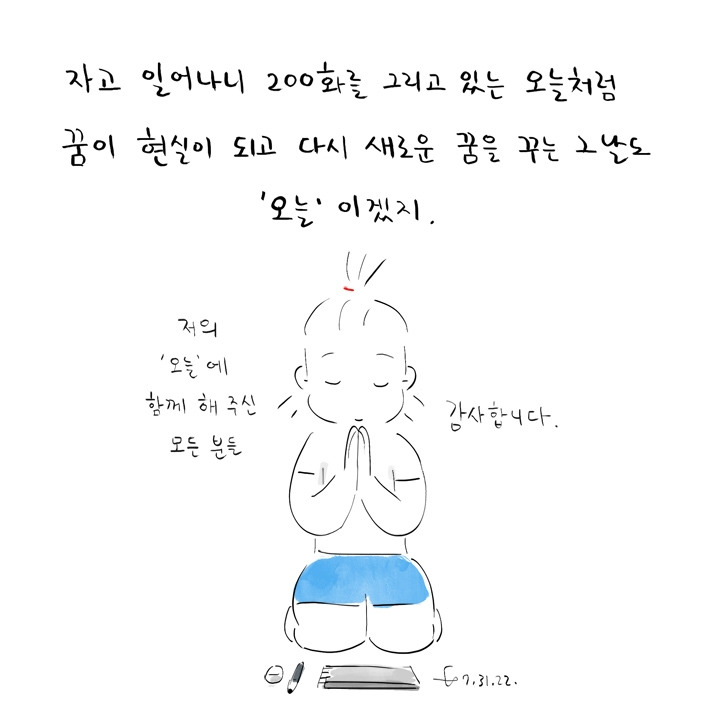 자고 일어나니 200화를 그리고 있는 오늘처럼
꿈이 현실이 되고 다시 새로운 꿈을 꾸는 그날도
'오늘' 이겠지.
저의
'오늘'에
함께 해 주신
모든 분들
감사합니다.
7.31.22.